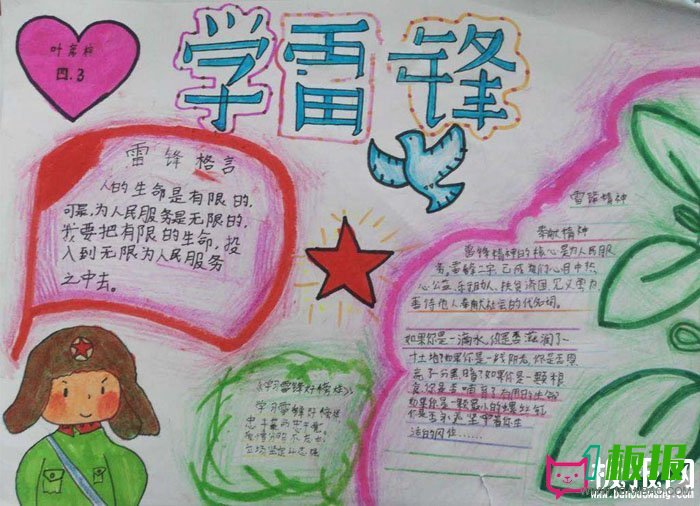 学雷锋
四.3
雷锋格言
人的生命是有限的,
可是,为人民服务是无限的,
我要把有限的生命,投
入到无限为人民服务
之中去。
雷锋精神
奉献精神
雷锋精神的核心是为人民服
务,雷锋二字,已成为们心目中热
心公益,乐于助人,扶贫济困,见义勇为,
善待他人,奉献社会的代名词。
如果你是一滴水,你是否滋润了一
寸土地?如果你是一线阳光,你是否照
亮了一分黑暗?如果你是一颗粮
食,你是否哺育了有用的生命
如果你是一颗最小的螺丝钉
你是否永远坚守着你生
活的岗位……
《学习雷锋好榜样》
学习雷锋好榜样
忠于革命忠于党
立场坚定
1板报
板报网